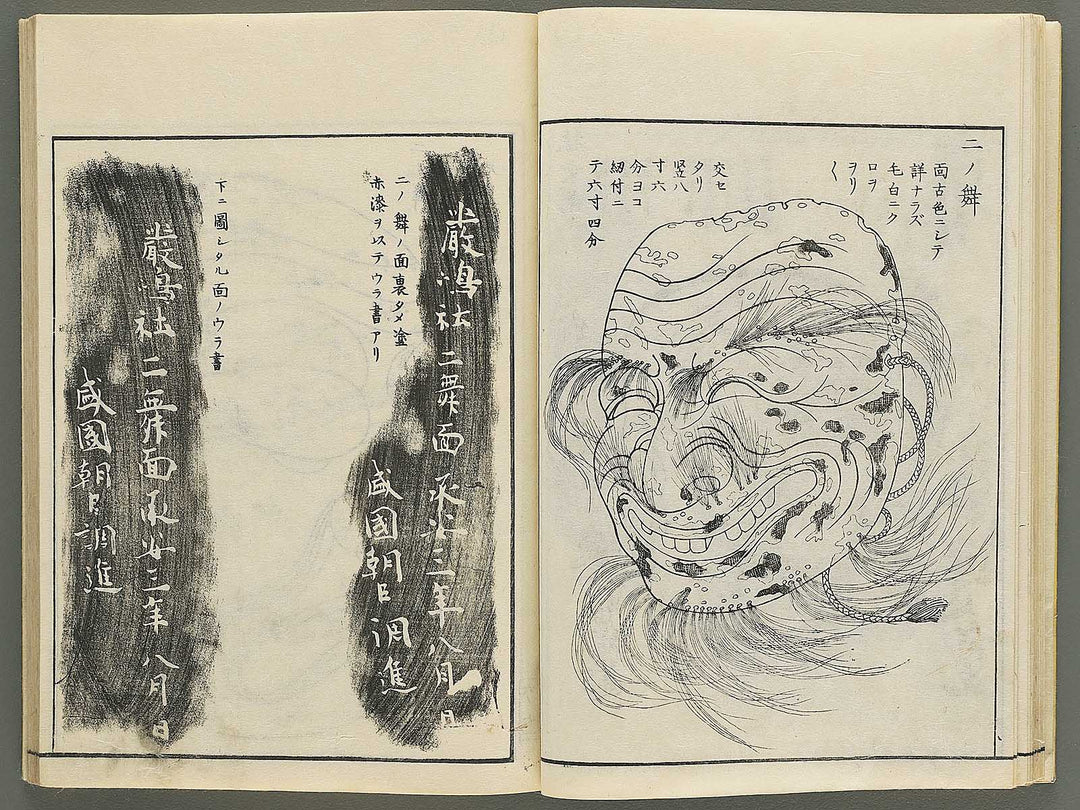 二ノ舞
面古色ニシテ
詳ナラズ
毛白ニク
ロヲ
ヲリ
〱
交セ
タリ
竪八
寸六
分ヨコ
紐付ニ
テ六寸四分
嚴嶋社二舞面承安三年八月一日
盛國朝臣調進
二ノ舞ノ面裏タメ塗
赤漆ヲ以テウラ書アリ
下ニ圖シタル面ノウラ書
嚴嶋社二舞面承安三年八月日
盛國朝臣調進